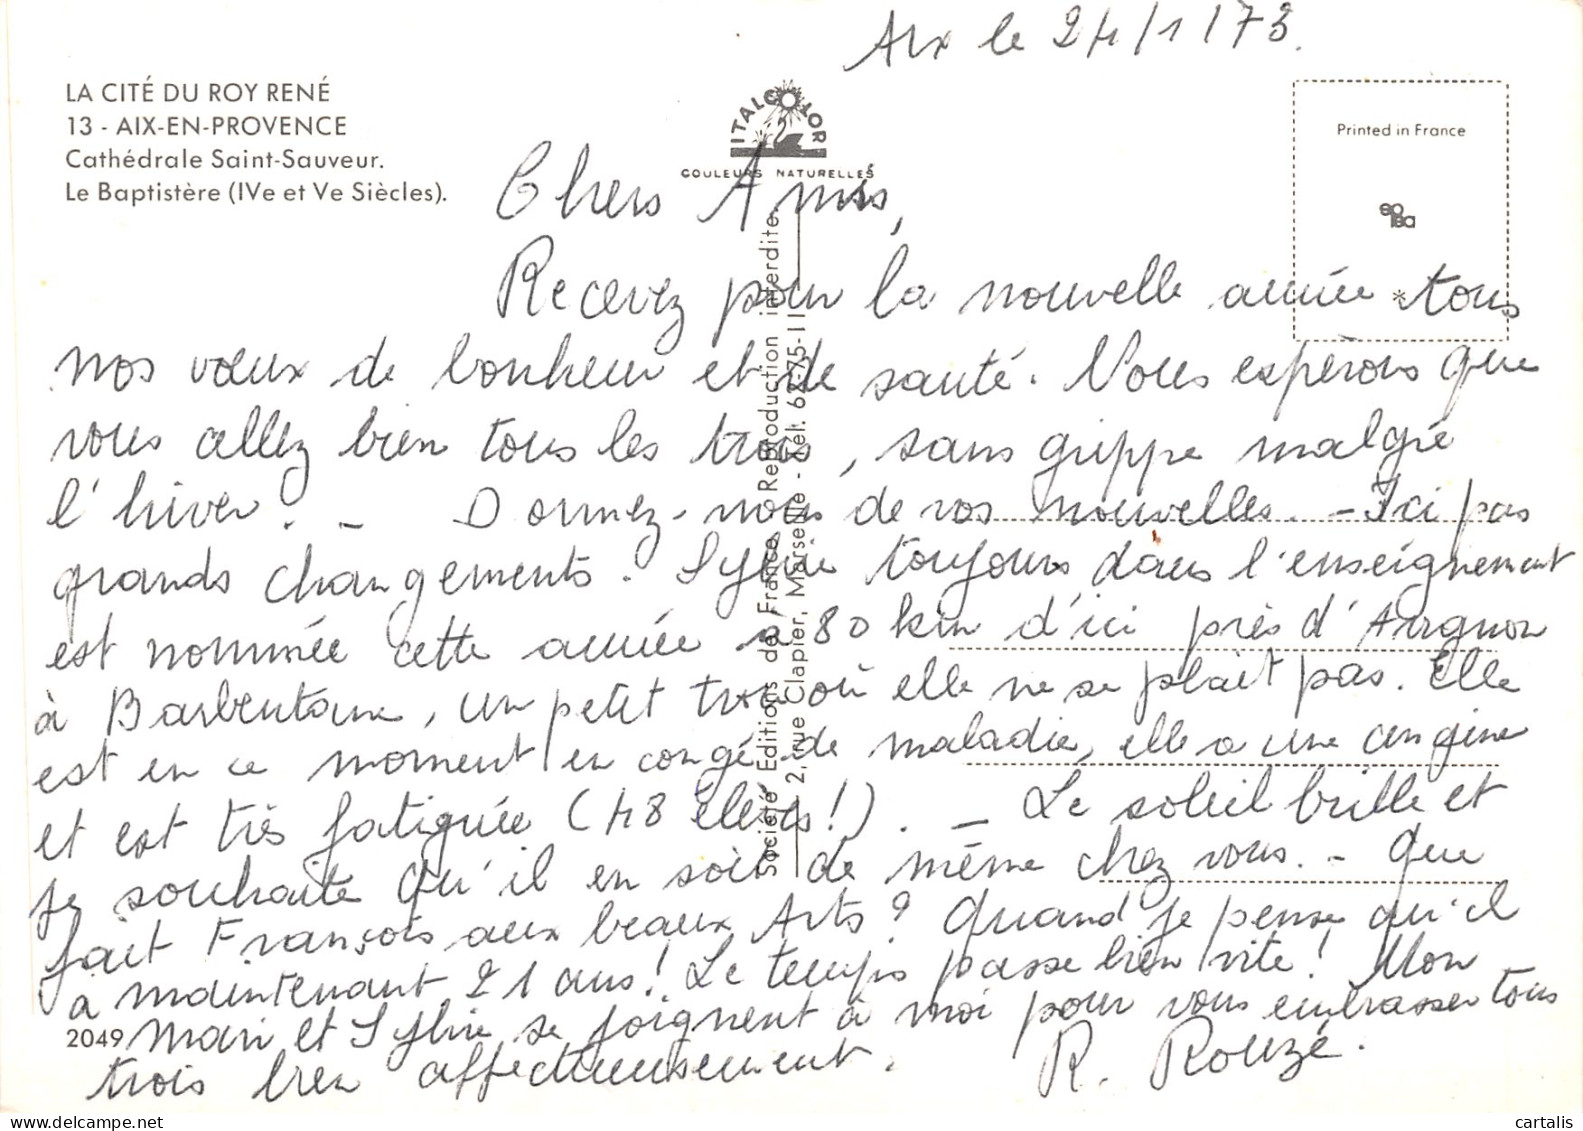 Aix le 24/1/73.
LA CITÉ DU ROY RENÉ
13 - AIX-EN-PROVENCE
Cathédrale Saint-Sauveur.
Le Baptistère (IVe et Ve Siècles).
ITALCOLOR
COULEURS NATURELLES
Printed in France
Chers Amis,
Recevez pour la nouvelle année tous
nos vœux de bonheur et de santé. Nous espérons que
vous allez bien tous les trois, sans grippe malgré
l'hiver. - Donnez-nous de vos nouvelles. - Ici pas
grands changements. Sylvie toujours dans l'enseignement
est nommée cette année à 80 km d'ici près d'Avignon
à Barbentane, un petit trou où elle ne se plaît pas. Elle
est en ce moment en congé de maladie, elle a une angine
et est très fatiguée (48 élèves!). - Le soleil brille et
je souhaite qu'il en soit de même chez vous. - Que
fait François aux beaux Arts? Quand je pense qu'il
a maintenant 21 ans! Le temps passe bien vite! Mon
mari et Sylvie se joignent à moi pour vous embrasser tous
trois bien affectueusement.
R. Rouzé.
2049
Société Editions de France Reproduction interdite.
2, rue Clapier, Marseille - Tél. 62-75-11